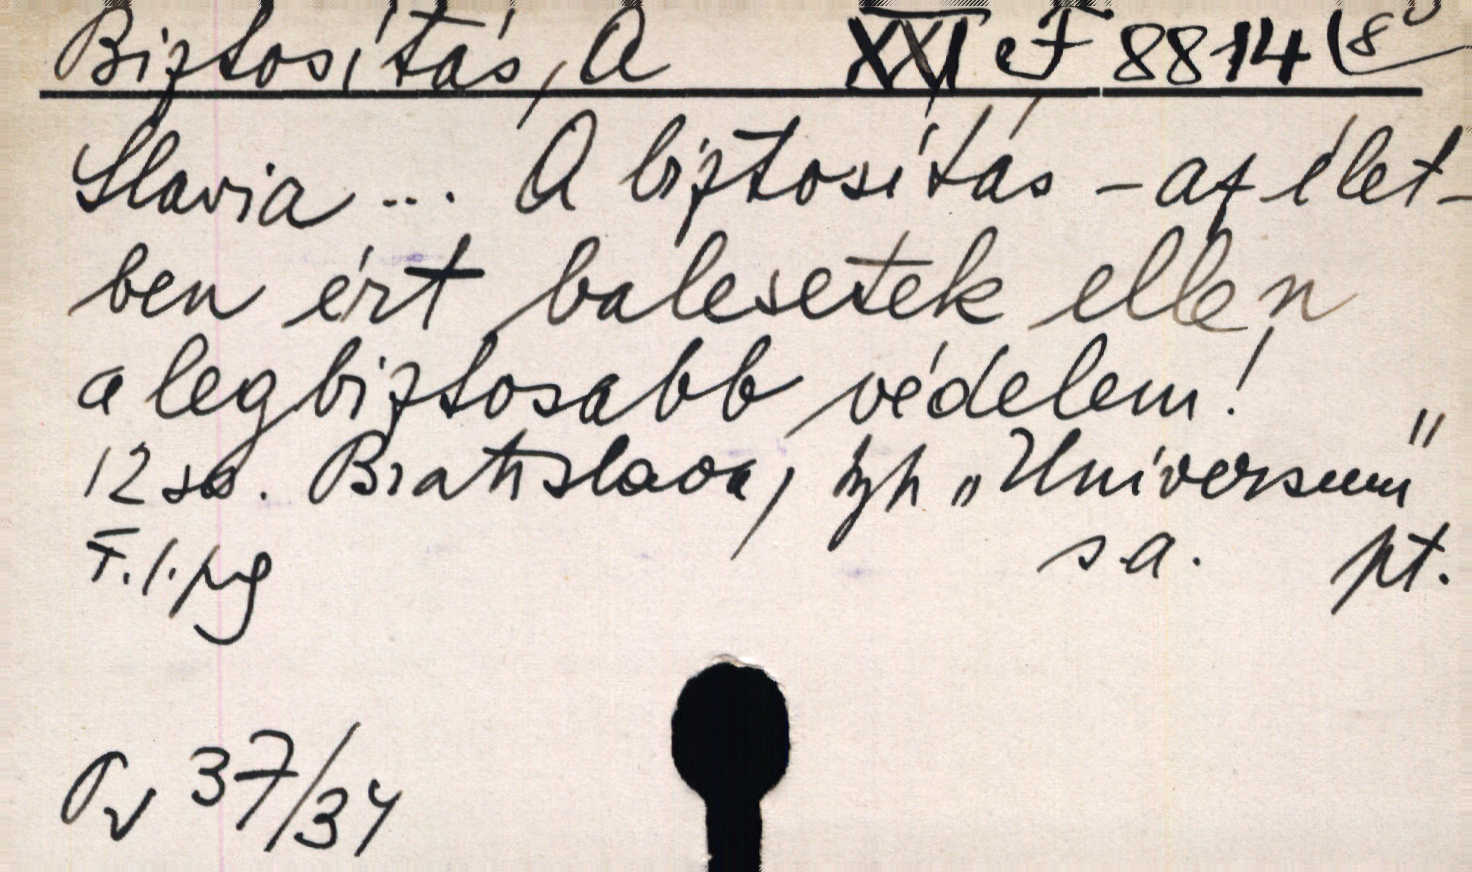 Biztosítás, A XXI e F 8814 (8°
Slavia ... A biztosítás – az élet-
ben ért balesetek ellen
a legbiztosabb védelem!
12 ss. Bratislava, "Universum"
F. l. pg s.a. pt.
Ov 37/34